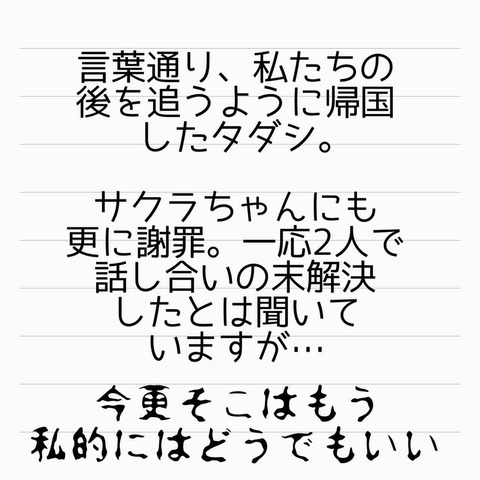 言葉通り、私たちの
後を追うように帰国
したタダシ。
サクラちゃんにも
更に謝罪。一応2人で
話し合いの末解決
したとは聞いて
いますが…
今更そこはもう
私的にはどうでもいい